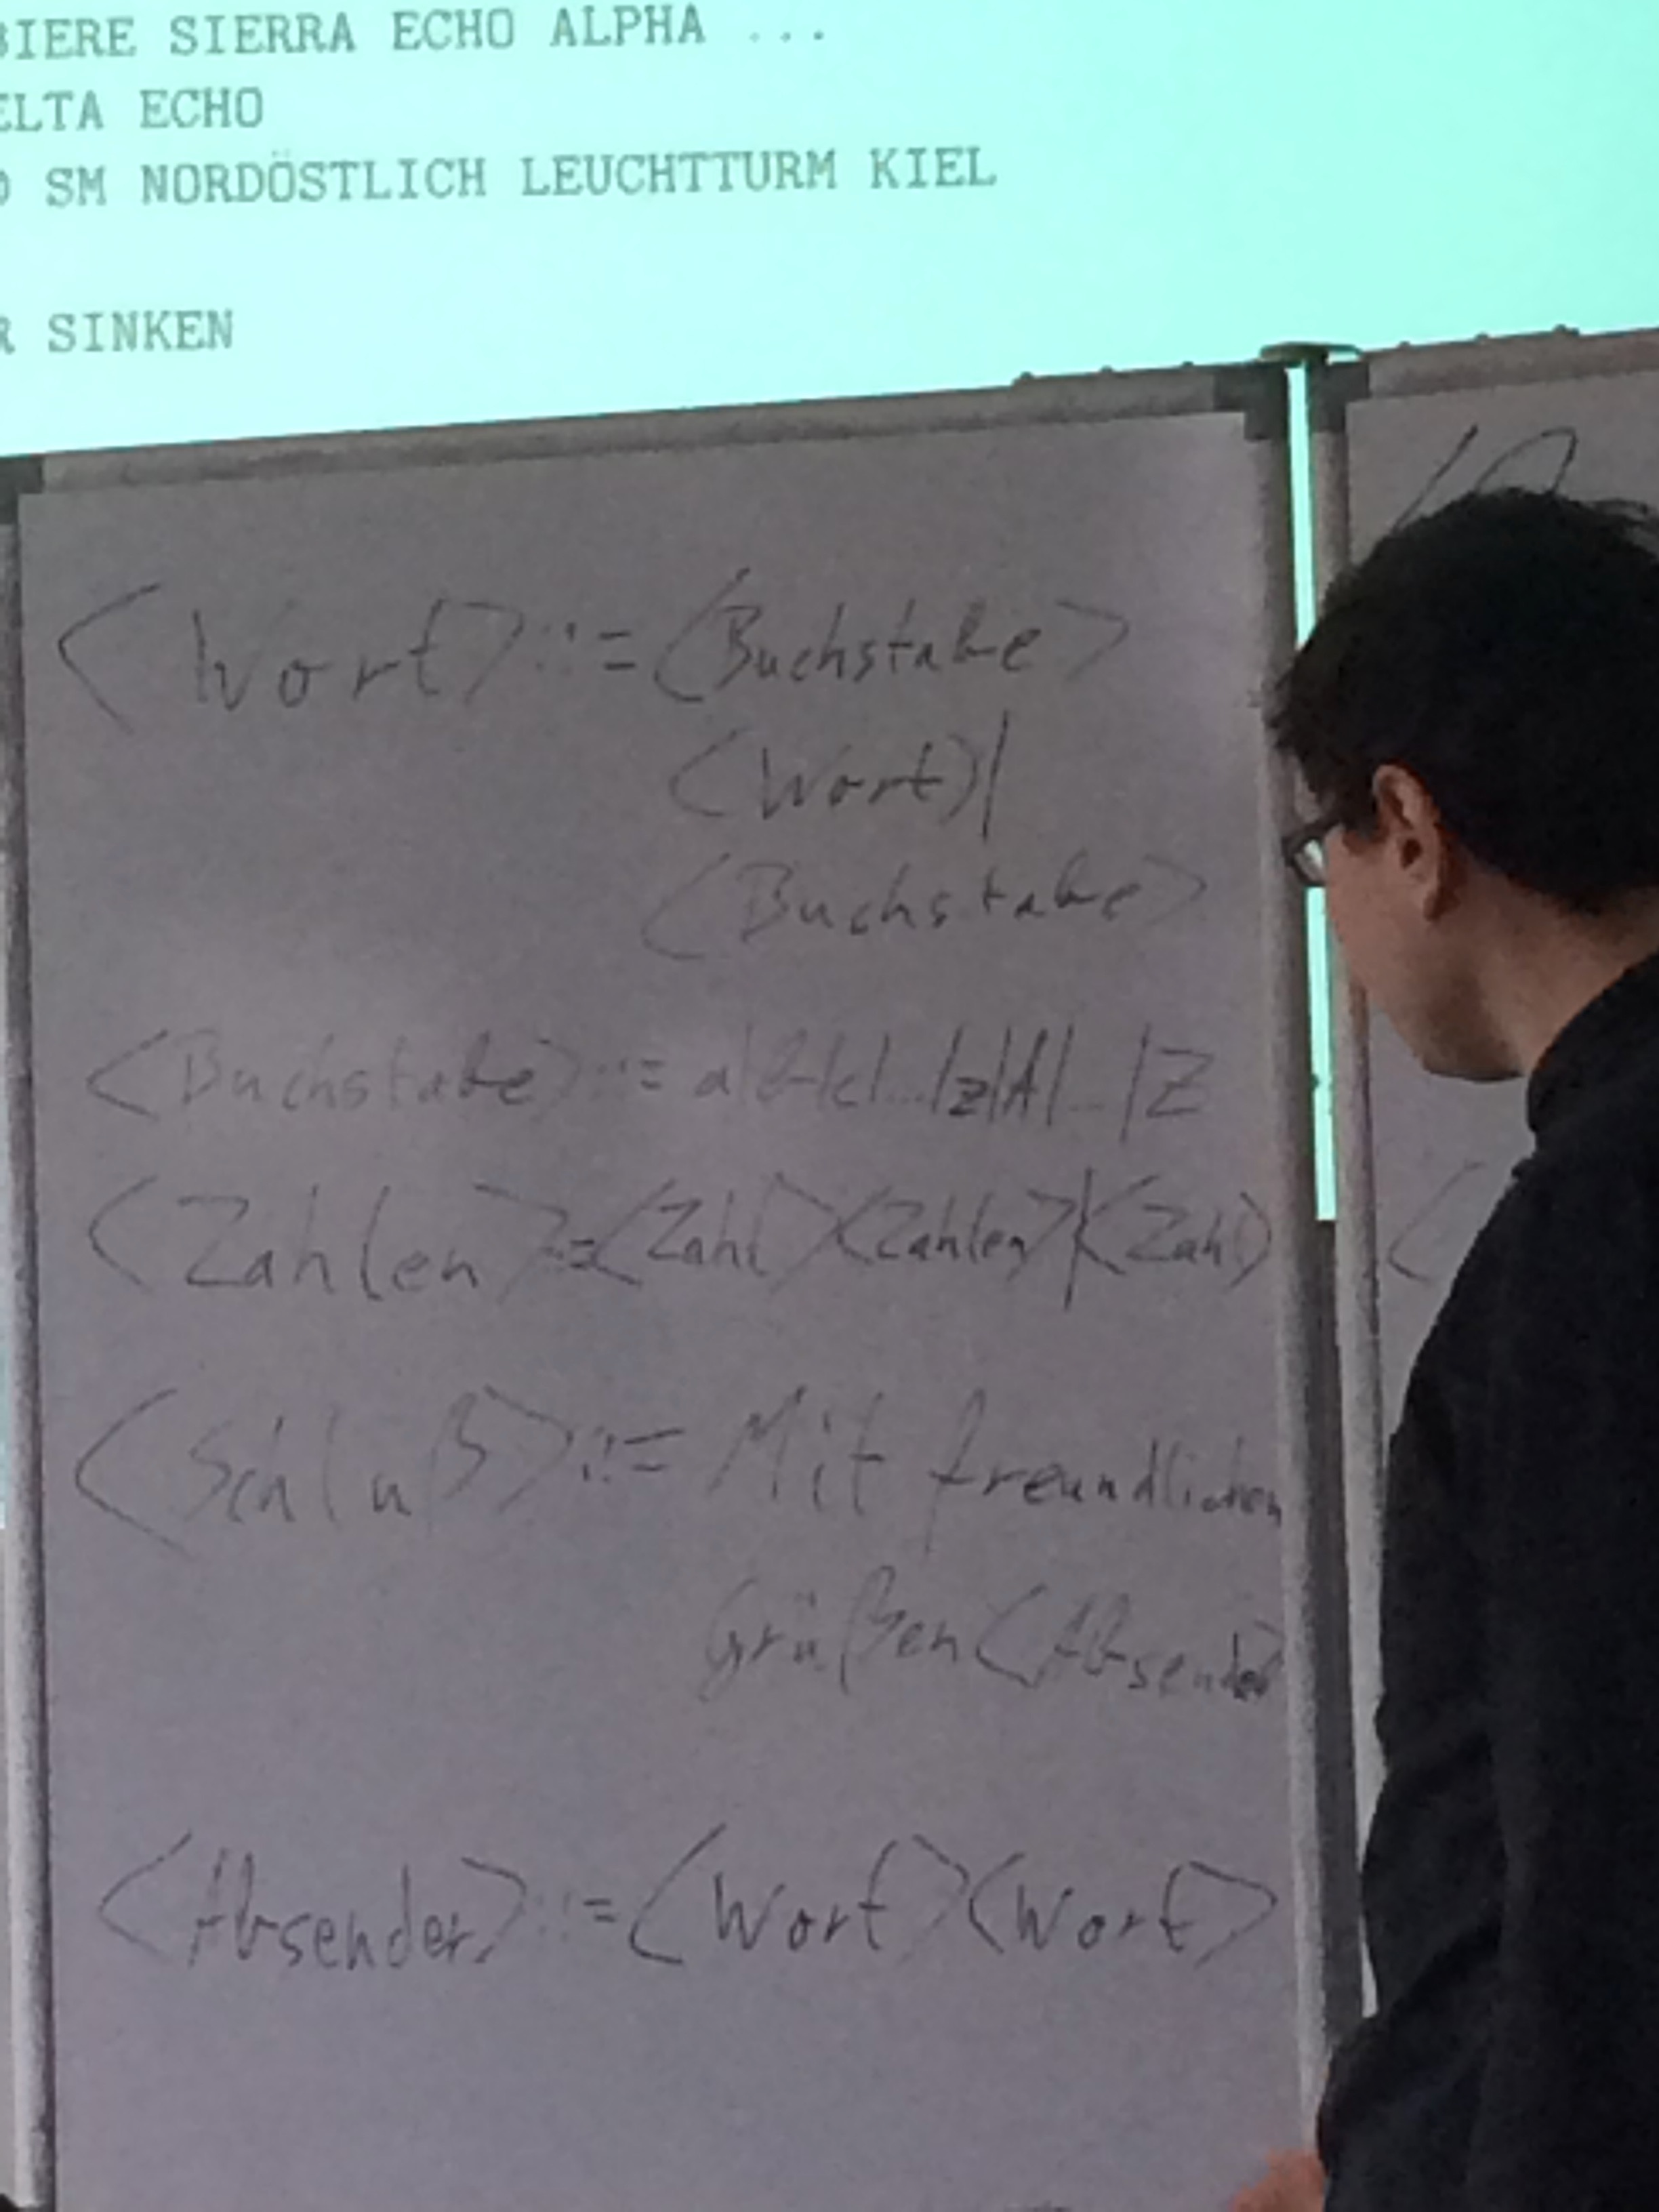 BIERE SIERRA ECHO ALPHA ...
ELTA ECHO
SM NORDÖSTLICH LEUCHTTURM KIEL
R SINKEN
<Wort>::=<Buchstabe>
<Wort>|
<Buchstabe>
<Buchstabe>::= a|b|c|...|z|A|...|Z
<Zahlen>::=<Zahl><Zahlen>|<Zahl>
<Schluß>::= Mit freundlichen
Grüßen <Absender>
<Absender>::=<Wort><Wort>